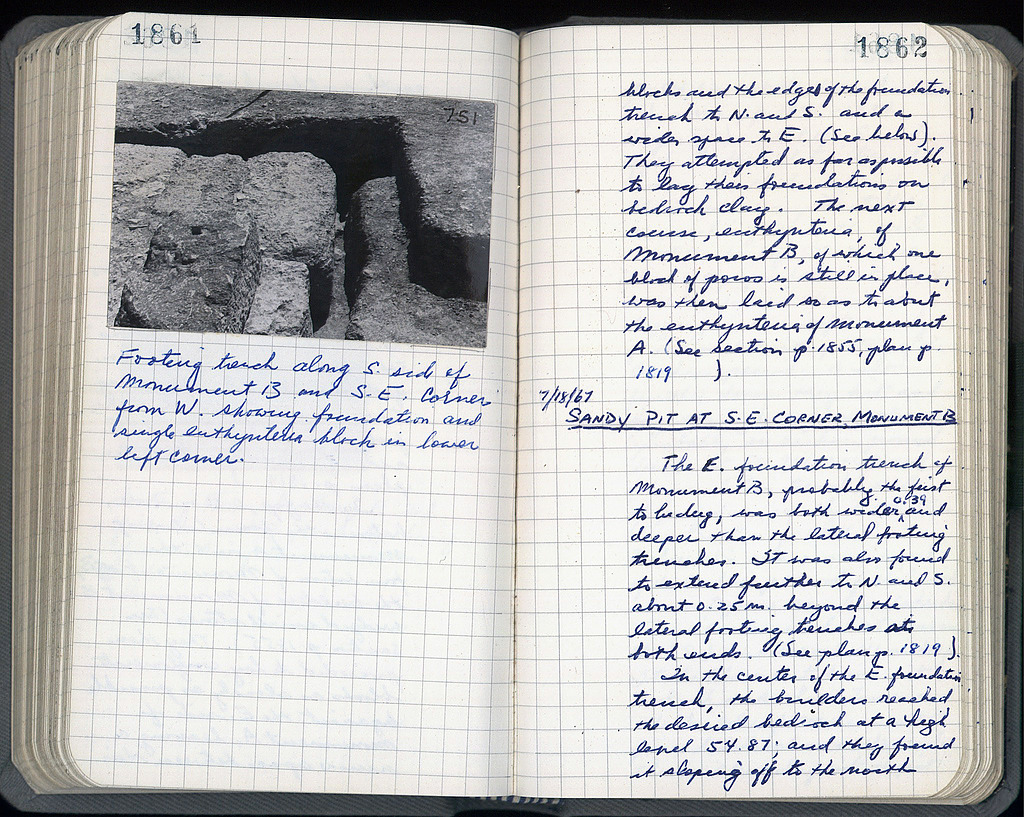 1861
751
Footing trench along S. side of
Monument B and S-E. Corner
from W. showing foundation and
single euthynteria block in lower
left corner.
1862
blocks and the edges of the foundation
trench to N. and S. and a
wider space to E. (See below).
They attempted as far as possible
to lay their foundations on
bedrock clay. The next
course, euthynteria, of
Monument B, of which one
block of poros is still in place,
was then laid so as to abut
the euthynteria of Monument
A. (See section p. 1855, plan p.
1819 ).
7/18/67
SANDY PIT AT S-E. CORNER, MONUMENT B
The E. foundation trench of
Monument B, probably the first
to be dug, was both wider, 0.39 and
deeper than the lateral footing
trenches. It was also found
to extend further to N. and S.
about 0.25 m. beyond the
lateral footing trenches at
both ends. (See plan p. 1819 ).
In the center of the E. foundation
trench, the builders reached
the desired bedrock at a high
level 54.87; and they found
it sloping off to the north